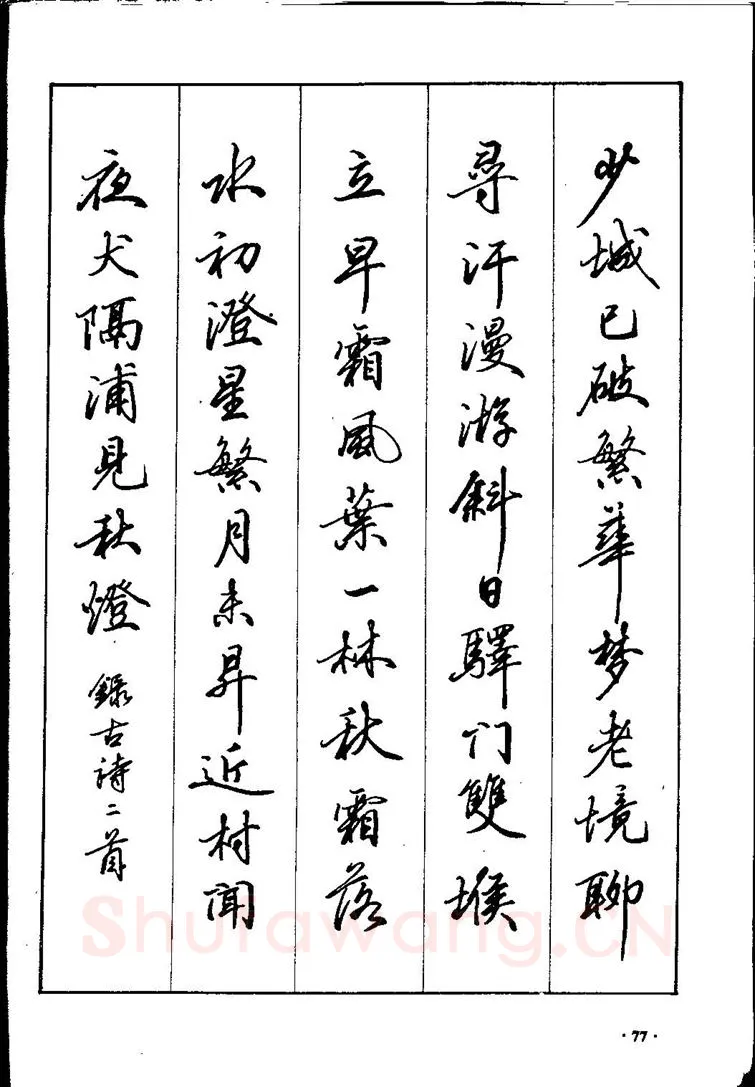 少城已破繁華梦老境聊
尋汗漫游斜日驛门雙堠
立早霜風葉一林秋霜落
水初澄星繁月未昇近村闻
夜犬隔浦見秋燈
錄古詩二首
Shufawang.CN
·77·